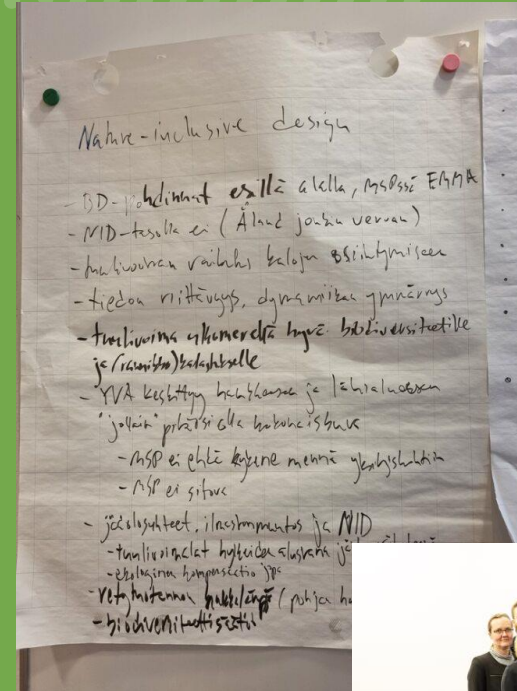 Nature-inclusive design
- BD- esillä alalla, MSPssä EMMA
- NID-tasolla ei (Åland jonkin verran)
- tuulivoiman vaikutus kalojen
- tiedon riittävyys, dynamiikan ymmärrys
- tuulivoima ulkomerellä hyvä biodiversiteetille
ja (rannikko)kalastukselle
- YVA keskittyy hankkeeseen ja lähialueeseen
"jollain" pitäisi olla kokonaiskuva
- MSP ei ehkä kykene menemään yksityiskohtiin
- MSP ei sitova
- jääolosuhteet, ilmastonmuutos ja NID
- tuulivoimalat hylkeiden alustana
- ekologinen kompensaatio jps
- (pohja
- biodiversiteettisäätiö